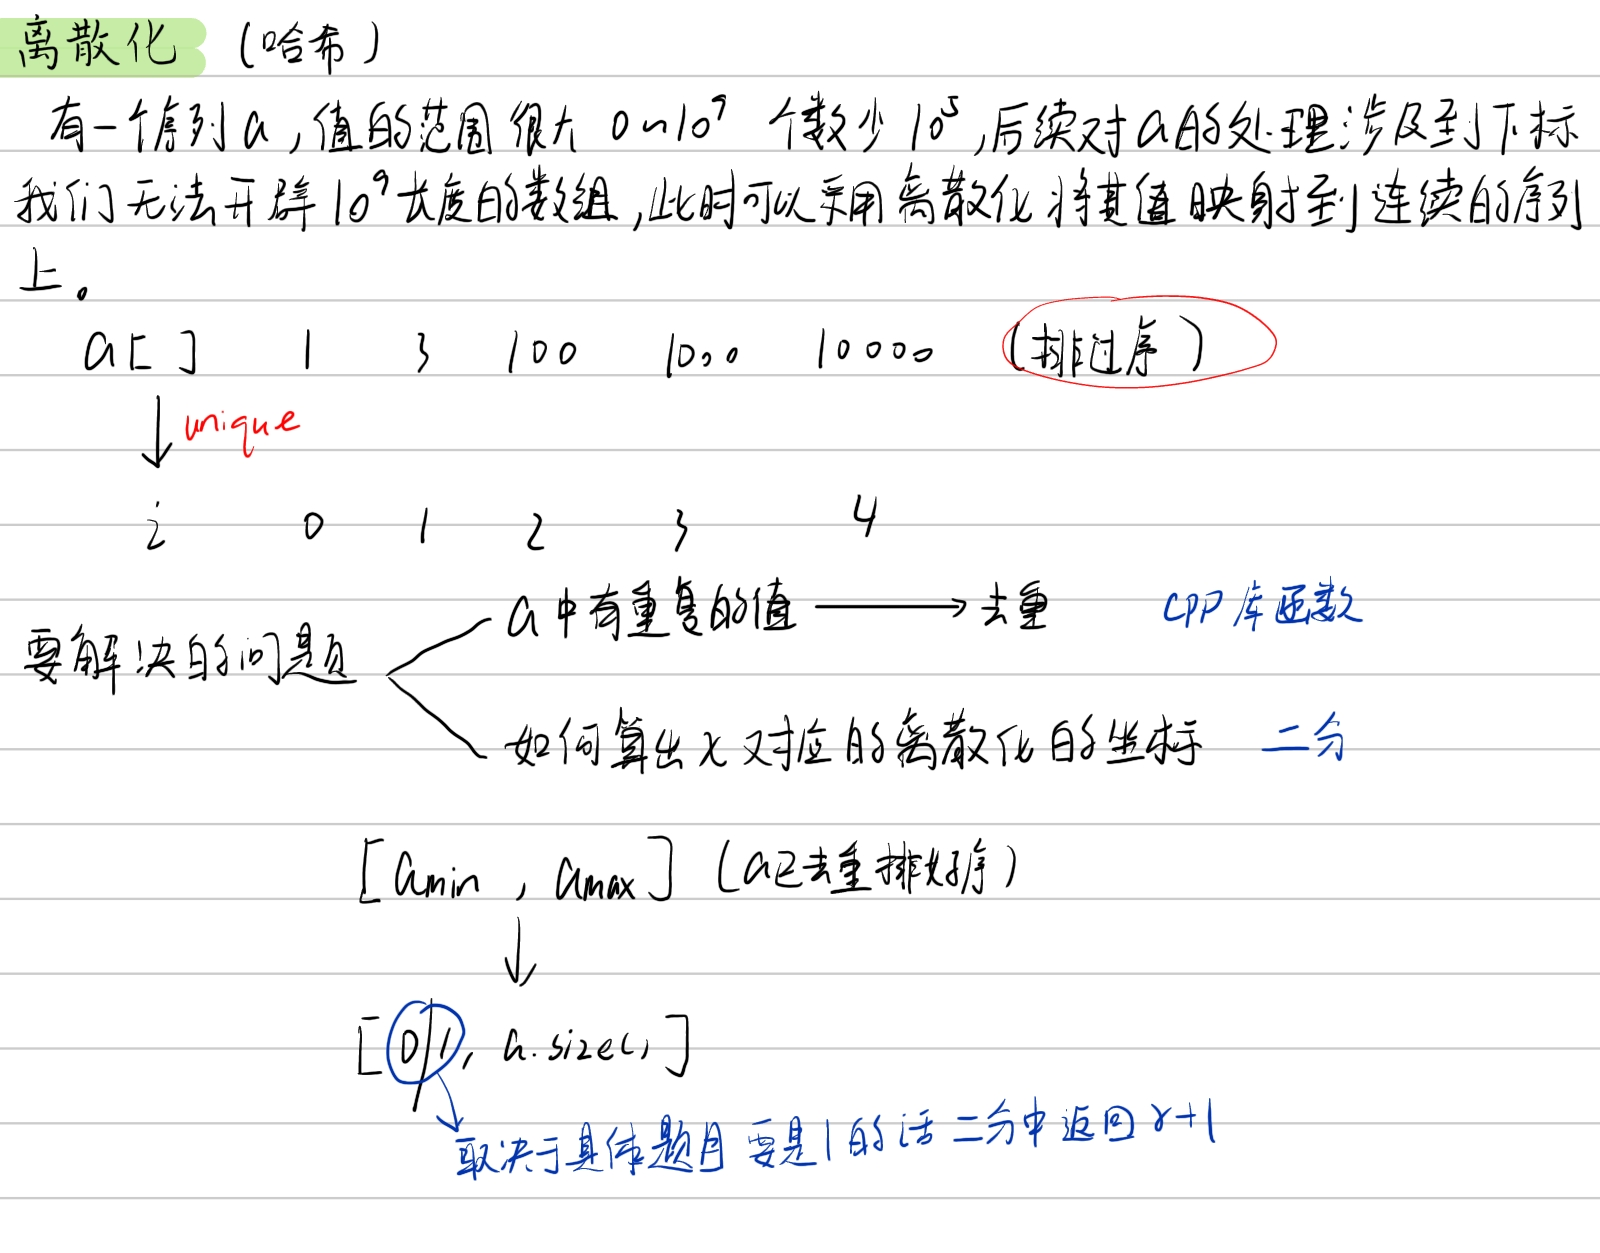 离散化 (哈希)
有一个序列a,值的范围很大 0~10⁹ 个数少 10⁵,后续对a的处理涉及到下标
我们无法开辟10⁹长度的数组,此时可以采用离散化将其值映射到连续的序列
上。
a[ ] 1 3 100 1000 10000 (排过序)
unique
i 0 1 2 3 4
a中有重复的值 → 去重 CPP库函数
要解决的问题
如何算出x对应的离散化的坐标 二分
[amin , amax] (a已去重排好序)
[0/1, a.size()]
取决于具体题目 要是1的话 二分中返回r+1